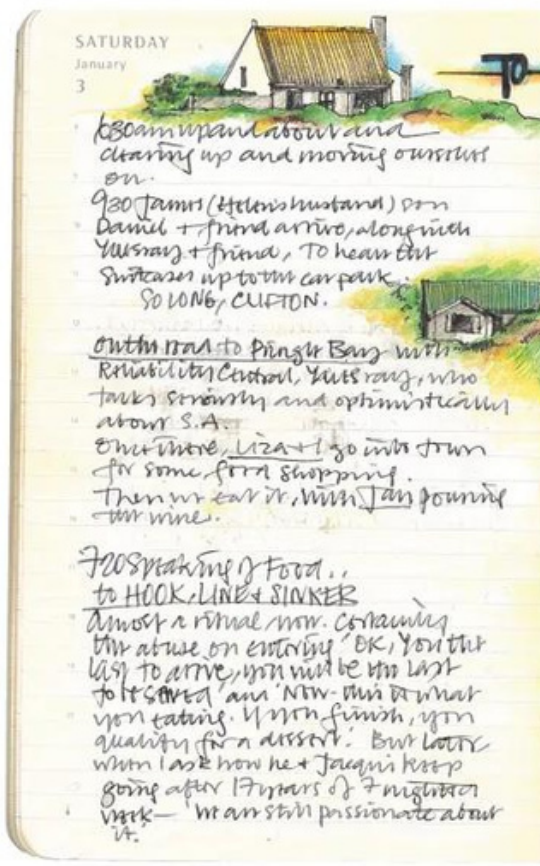 SATURDAY
January
3
TO
630am up and about and
clearing up and moving ourselves
on.
930 James (Helen's husband) son
Daniel + friend arrive, along with
Yusray + friend, To heave the
Suitcases up to the car park.
SO LONG, CLIFTON.
On the road to Pringle Bay with
Reliability Central, Yusray, who
talks seriously and optimistically
about S.A.
Once there, Liza + I go into town
for some food shopping.
Then we eat it, with Jan pouring
the wine.
720 Speaking of Food..
to HOOK, LINE + SINKER
Almost a ritual now. Certainly
the abuse on entering 'OK, You the
last to arrive, you will be the last
to be served' and 'Now - this is what
you eating. If you finish, you
qualify for a dessert.' But later
when I ask how he + Jacqui keep
going after 17 years of 7 nights a
week — 'We are still passionate about
it.'